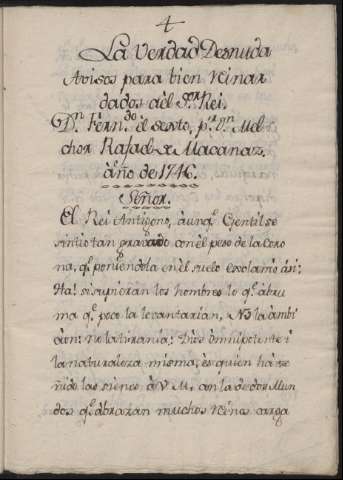 4
La Verdad Desnuda
Avisos para bien reinar
dados àel S.or Rei.
D.n Fern.do el sexto, p.r D.n Mel-
chor Rafael de Macanaz.
año de 1746.
Señor.
El Rei Antigono, àunq.e Gentil se
sintio tan gravado con èl peso de la Coro-
na, q.e poniendola en èl suelo esclamò àsi:
Ha! si supieran los hombres lo q.e àbru-
ma q.e poco la levantarian, No la àmbi-
àon: no la tirania: Dios òmnipotente i
la naturaleza misma, es quien hà ze-
ñido las sienes à V. M. con la de dos Mun-
dos q.e àbrazan muchos reinos carga